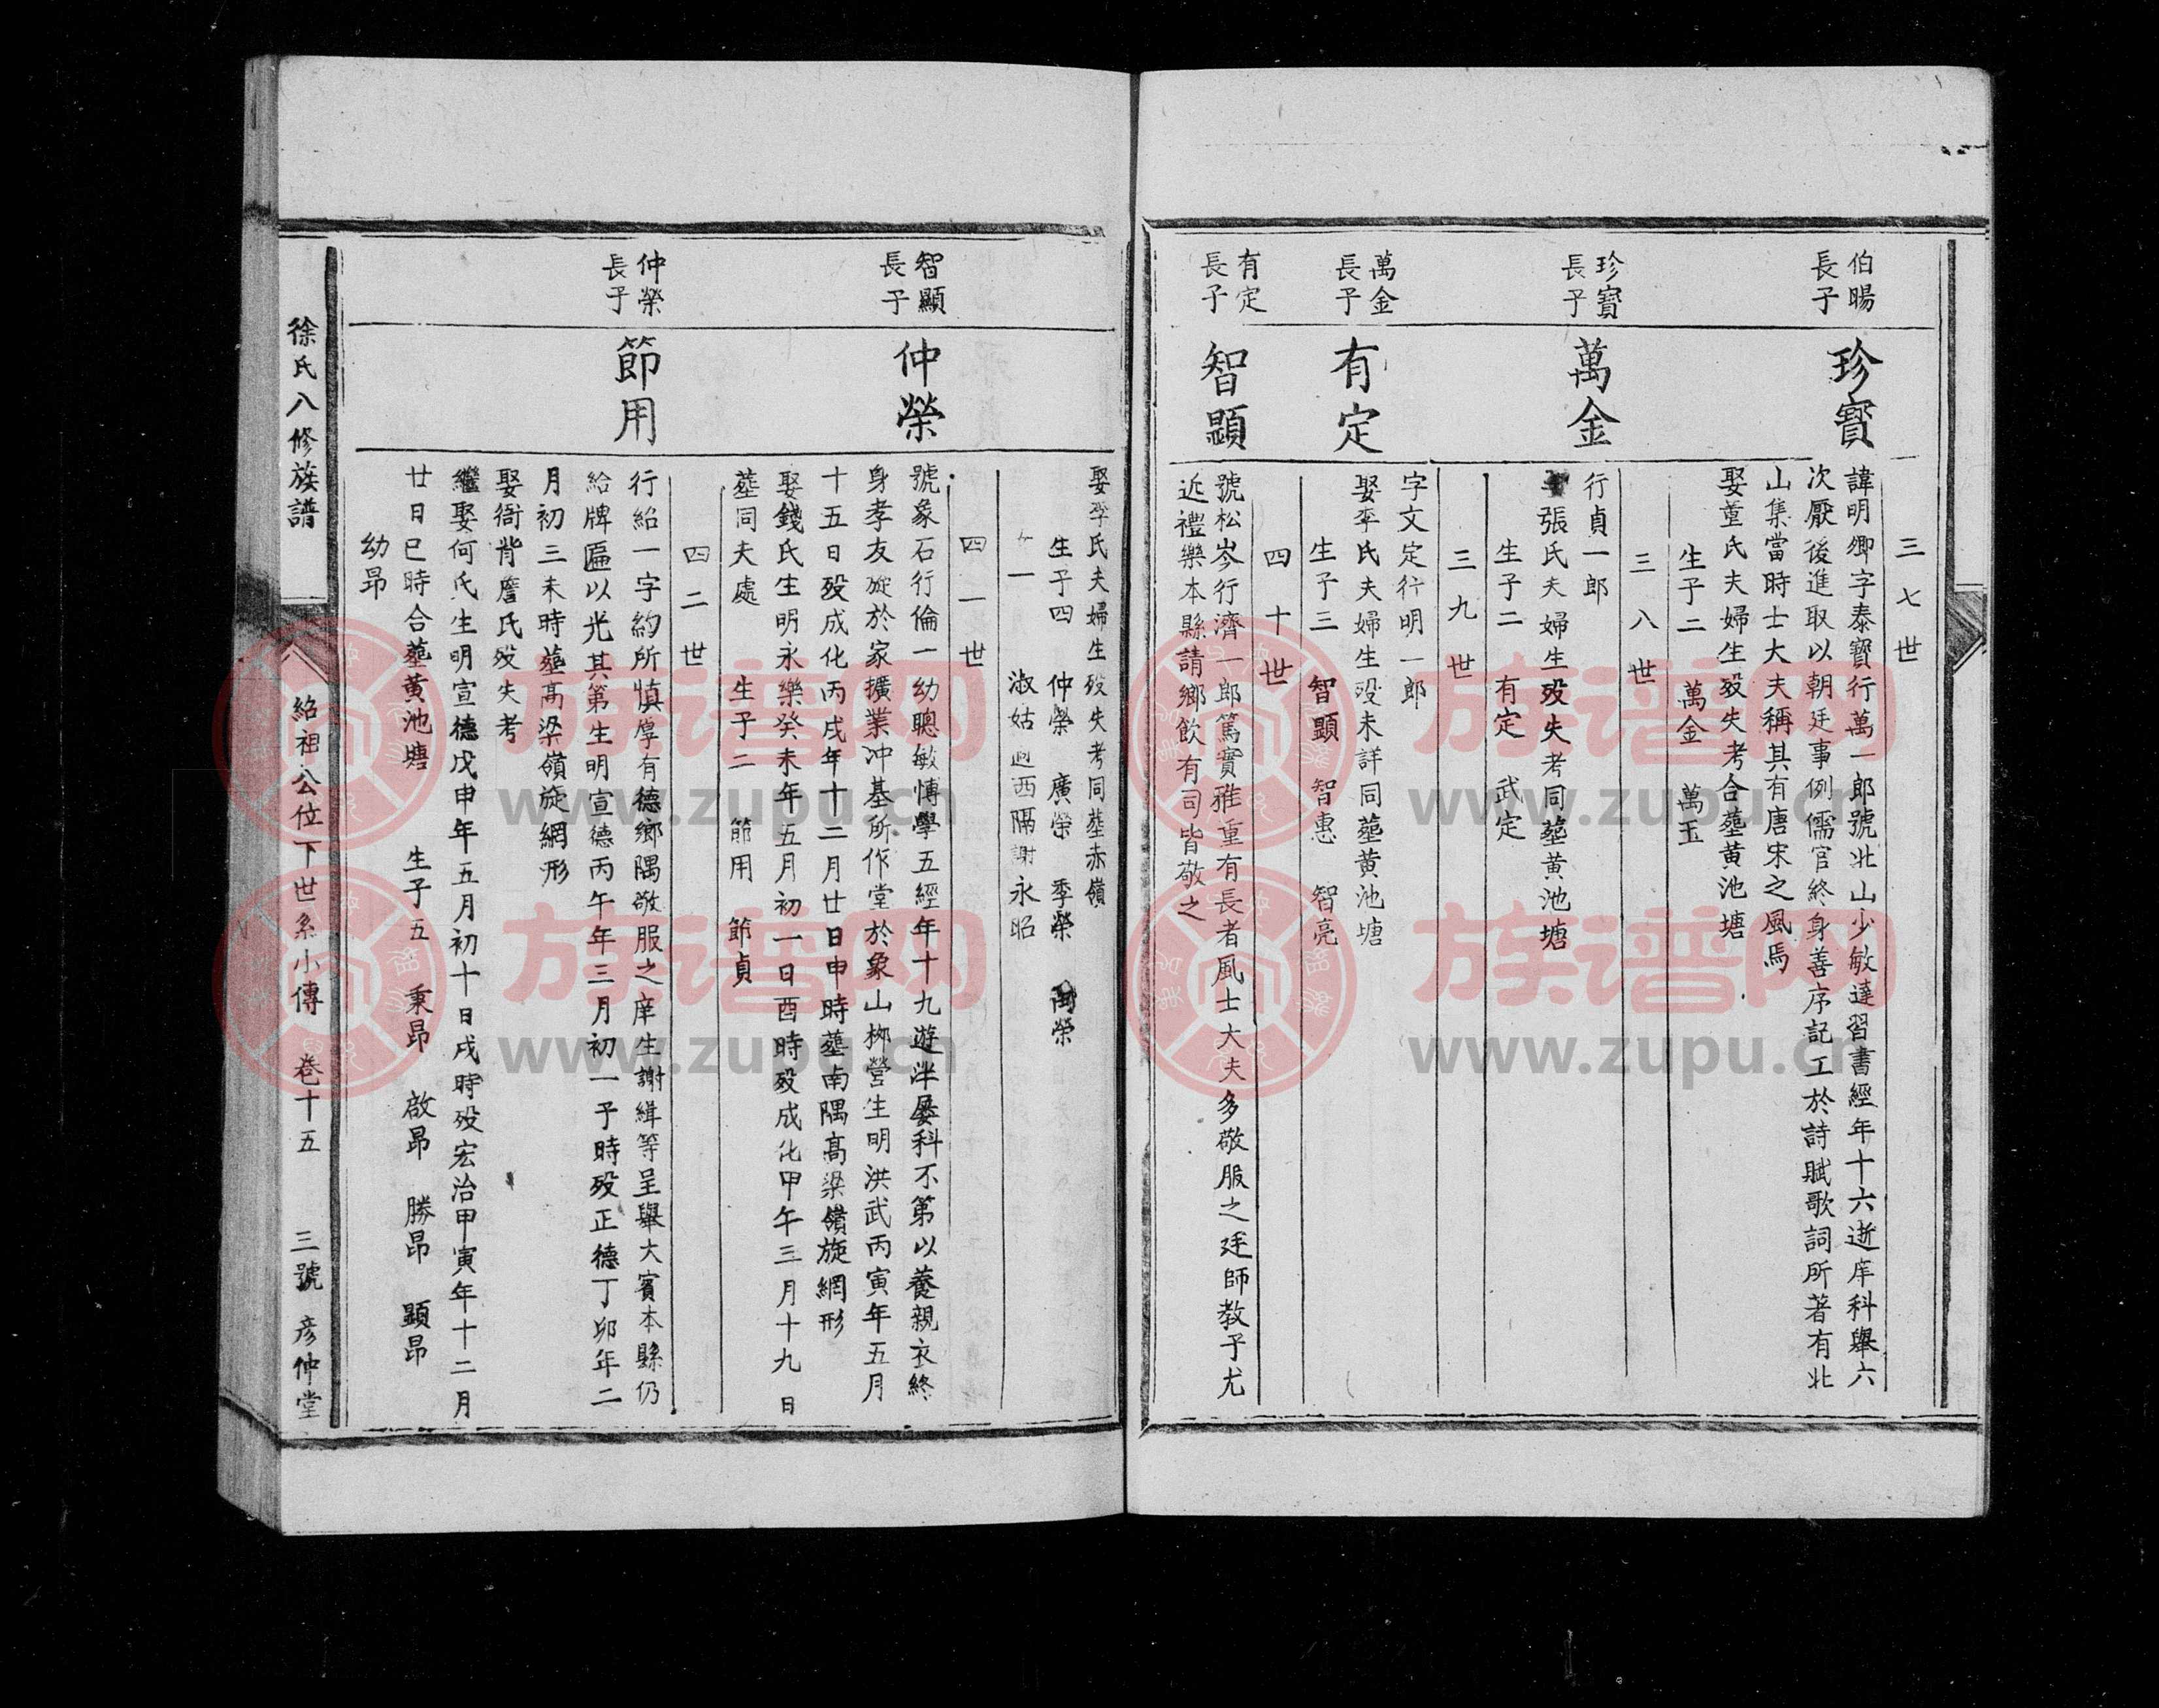 三七世
伯暘長子
珍寶
諱明卿字泰寶行萬一郎號北山少敏達習書經年十六遊庠科舉六
次厭後進取以朝廷事例儒官終身善序記工於詩賦歌詞所著有北
山集當時士大夫稱其有唐宋之風焉
娶董氏夫婦生歿失考合塟黃池塘
生子二 萬金 萬玉
三八世
珍寶長子
萬金
行貞一郎
張氏夫婦生歿失考同塟黃池塘
生子二 有定 武定
三九世
萬金長子
有定
字文定行明一郎
娶李氏夫婦生歿未詳同塟黃池塘
生子三 智顯 智惠 智亮
四十世
有定長子
智顯
號松岑行濟一郎篤實雅重有長者風士大夫多敬服之廷師教子尤
近禮樂本縣請鄉飲有司皆敬之
娶李氏夫婦生歿失考同塟赤嶺
生子四 仲榮 廣榮 季榮 萬榮
一 淑姑適西隔謝永昭
四一世
智顯長子
仲榮
號象石行倫一幼聰敏博學五經年十九遊泮屢科不第以養親衣終
身孝友旋於家擴業冲基所作堂於象山栁營生明洪武丙寅年五月
十五日歿成化丙戌年十二月廿日申時塟南隅高梁嶺旋網形
娶錢氏生明永樂癸未年五月初一日酉時歿成化甲午三月十九日
塟同夫處 生子二 節用 節貞
四二世
仲榮長子
節用
行紹一字約所慎厚有德鄉隅敬服之庠生謝緝等呈舉大賓本縣仍
給牌匾以光其第生明宣德丙午年三月初一子時歿正德丁卯年二
月初三未時塟高梁嶺旋網形
娶衙背詹氏歿失考
繼娶何氏生明宣德戊申年五月初十日戌時歿宏治甲寅年十二月
廿日巳時合塟黃池塘 生子五 秉昂 啟昂 勝昂 顯昂
幼昂
徐氏八修族譜 紹祖公位下世系小傳 卷十五 三號 彥仲堂
族谱网
www.zupu.cn
族谱网
www.zupu.cn
族谱网
www.zupu.cn
族谱网
www.zupu.cn